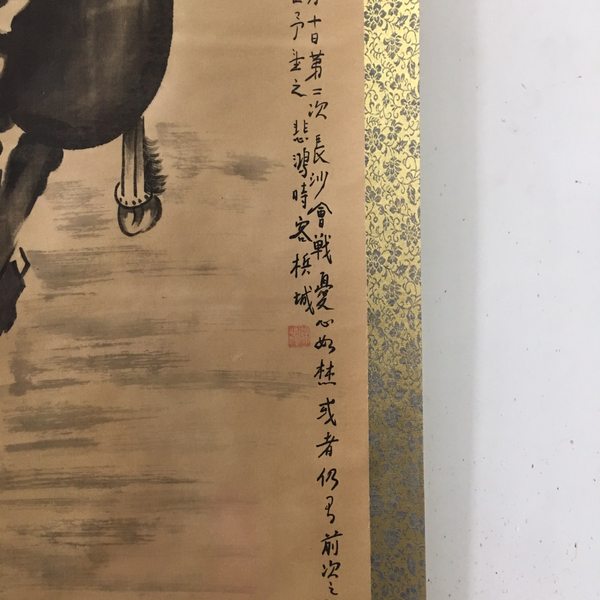 十日第二次長沙會戰憂心如焚或者仍有前次之
予望之悲鴻時客檳城